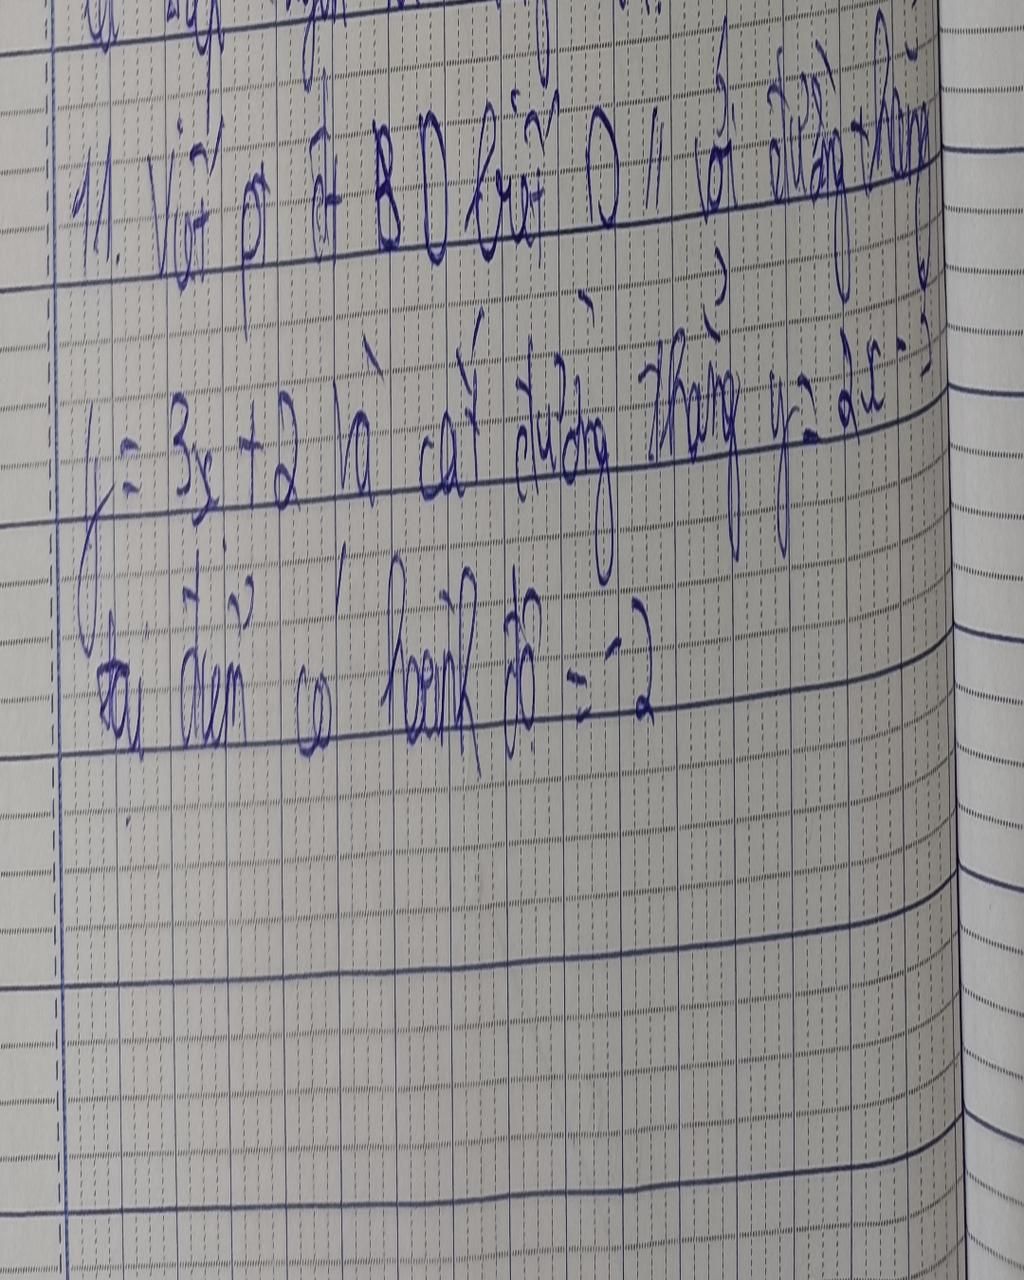 11. Viết pt đt BD biết D // với đường thẳng
y = 3x + 2 và cắt đường thẳng y = 2x - 3
tại điểm có hoành độ = -2